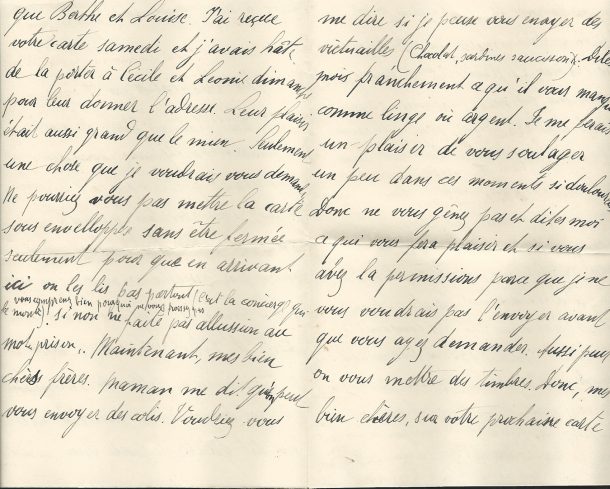 que Berthe et Louise. J'ai reçue
votre carte samedi et j'avais hâte
de la porter à Cécile et Leonie dimanche
pour leur donner l'adresse. Leur plaisir
était aussi grand que le mien. Seulement
une chose que je voudrais vous demander
Ne pourriez vous pas mettre la carte
sous envelloppe sans être fermée
seulement pour que en arrivant
ici on les lis pas partout (c'est la concierge qui
vous comprenez bien pourquoi
le montre). Si non ne faite pas allussion au
mot "prison". Maintenant, mes bien
chèrs frères. Maman me dit qu'on peut
vous envoyer des colis. Voudriez-vous
me dire si je peuse vous envoyer des
victuailles (Chocolat, sardines saucisson). Dites
mois franchement a qu'il vous manque
comme linge où argent. Je me ferais
un plaisir de vous soulager
un peu dans ces moments si douloureux
Donc ne vous gênez pas et dites moi
a qui vous fera plaisir et si vous
avez la permissions parce que je ne
vous voudrais pas l'envoyer avant
que vous ayez demander. Aussi peus
on vous mettre des timbres. Donc, mes
bien chères, sur votre prochaine carte